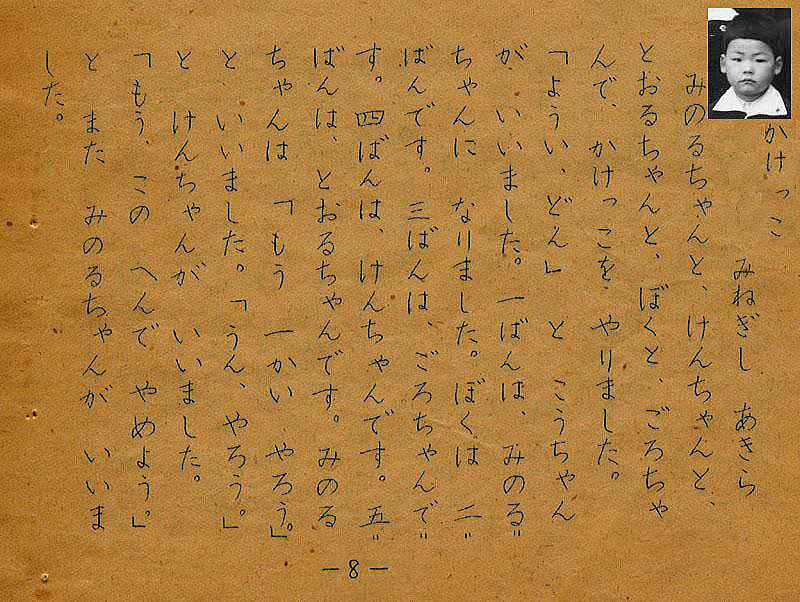 かけっこ
みねぎし あきら
みのるちゃんと、けんちゃんと、
とおるちゃんと、ぼくと、ごろちゃ
んで、かけっこを やりました。
「ようい、どん」 と こうちゃん
が、いいました。一ばんは、みのる〃
ちゃんに なりました。ぼくは 二〃
ばんです。三ばんは、ごろちゃんで〃
す。四ばんは、けんちゃんです。五〃
ばんは、とおるちゃんです。みのる
ちゃんは 「もう 一かい やろう。」
と いいました。「うん、やろう。」
と けんちゃんが いいました。
「もう、この へんで やめよう。」
と また みのるちゃんが いいま
した。
—8—